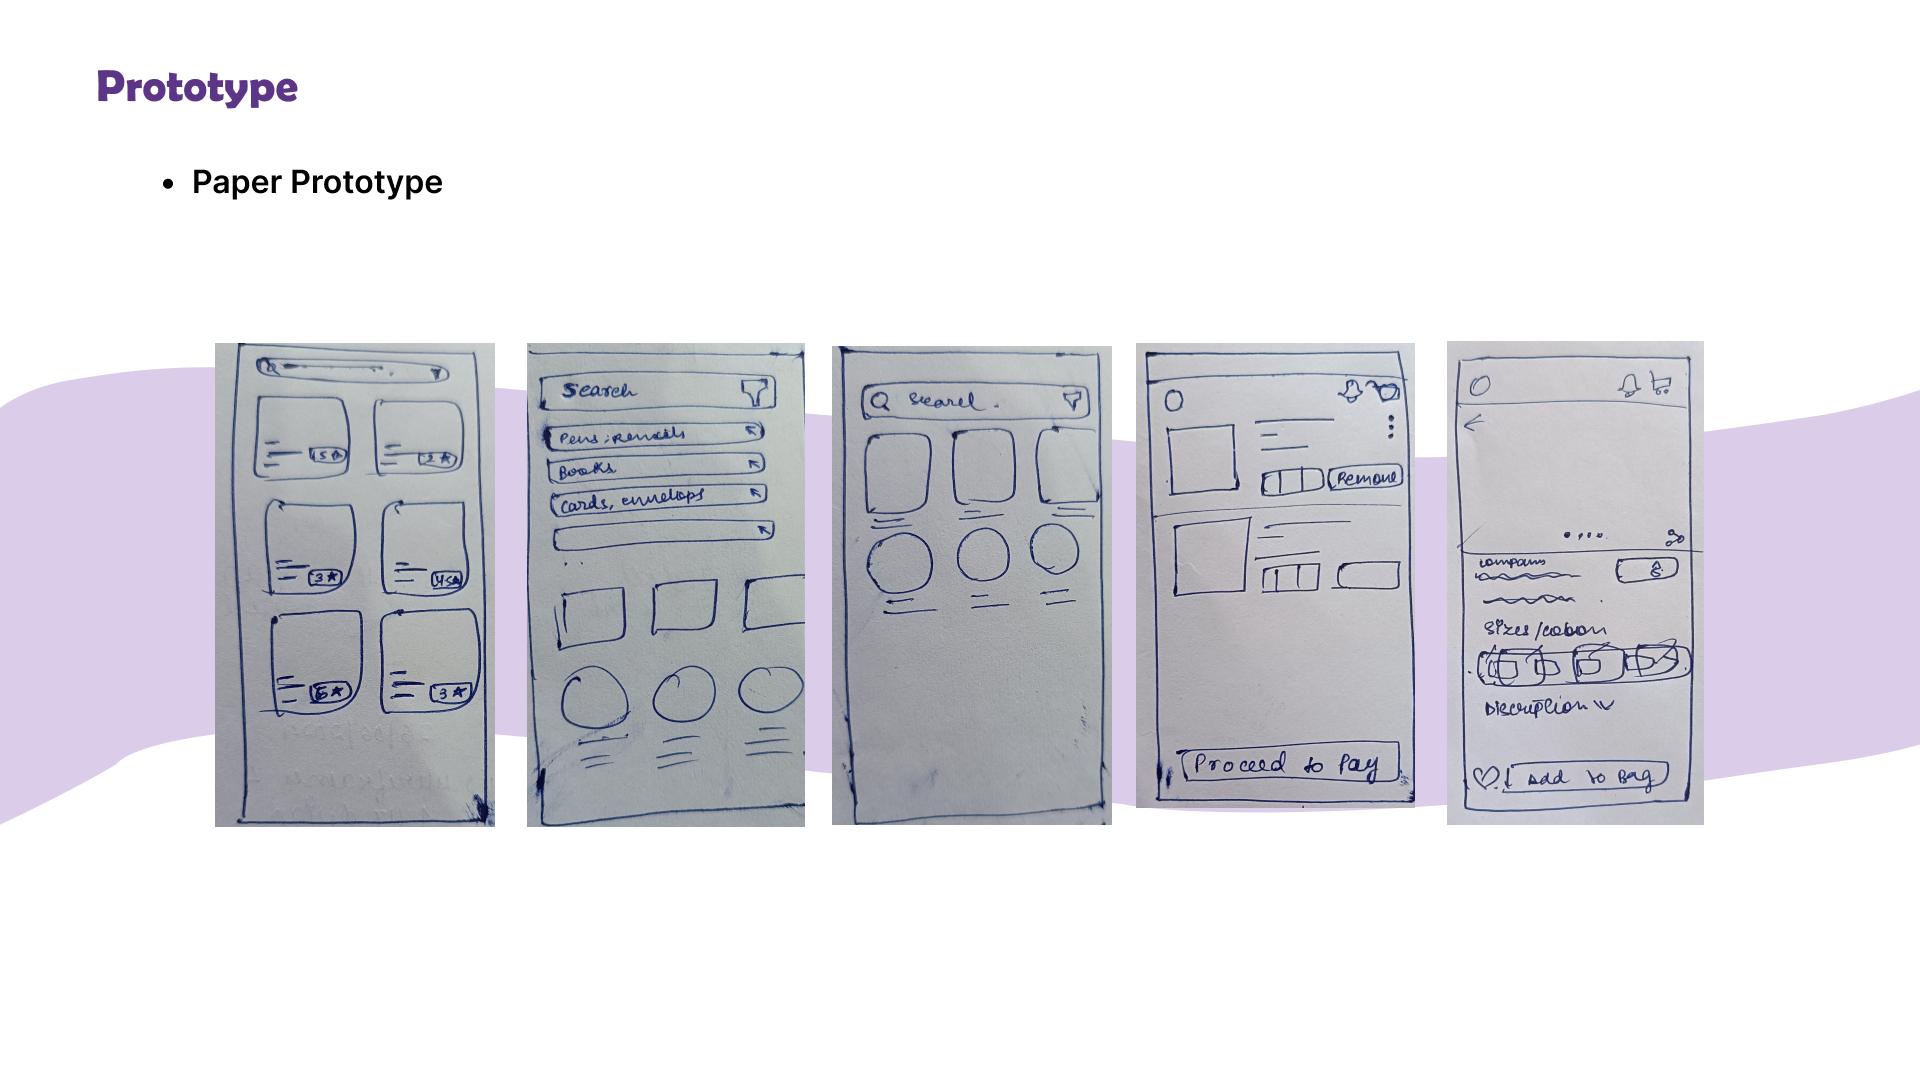 Prototype
Paper Prototype
3
4.5
3
Search
Pens, Pencils
Books
Cards, envelops
Search
Remove
Proceed to Pay
company
Sizes/
Discription
Add to Bag